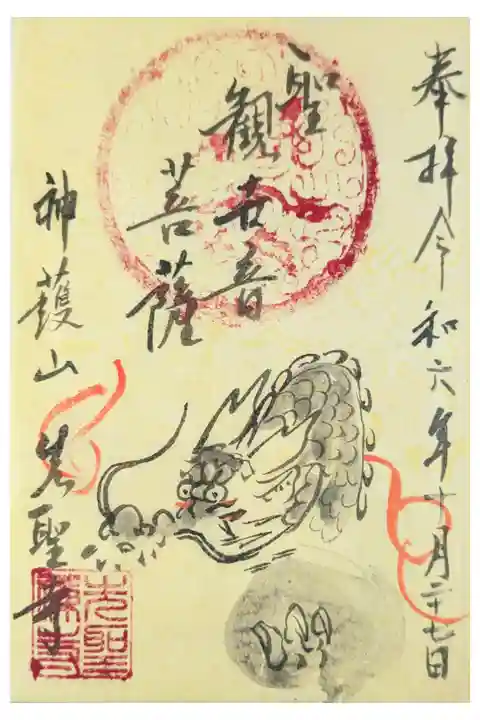 奉拝令和六年十月二十七日
聖
観世音
菩薩
神護山
先聖寺